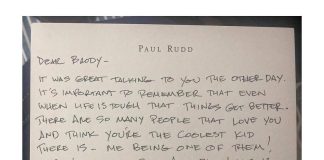 PAUL RUDD
DEAR BRODY-
IT WAS GREAT TALKING TO YOU THE OTHER DAY.
IT'S IMPORTANT TO REMEMBER THAT EVEN
WHEN LIFE IS TOUGH THAT THINGS GET BETTER.
THERE ARE SO MANY PEOPLE THAT LOVE YOU
AND THINK YOU'RE THE COOLEST KID
THERE IS - ME BEING ONE OF THEM!